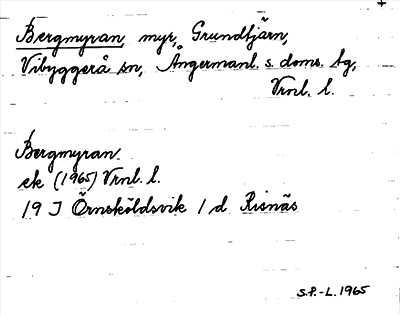 +
Bergmyran, myr, Grundtjärn,
Vibyggerå sn, Ångermanl. s. doms. tg,
Vrnl. l.
Bergmyran.
ek (1965) Vrnl. l.
19 J Örnsköldsvik 1 d Risnäs
S.P.-L. 1965